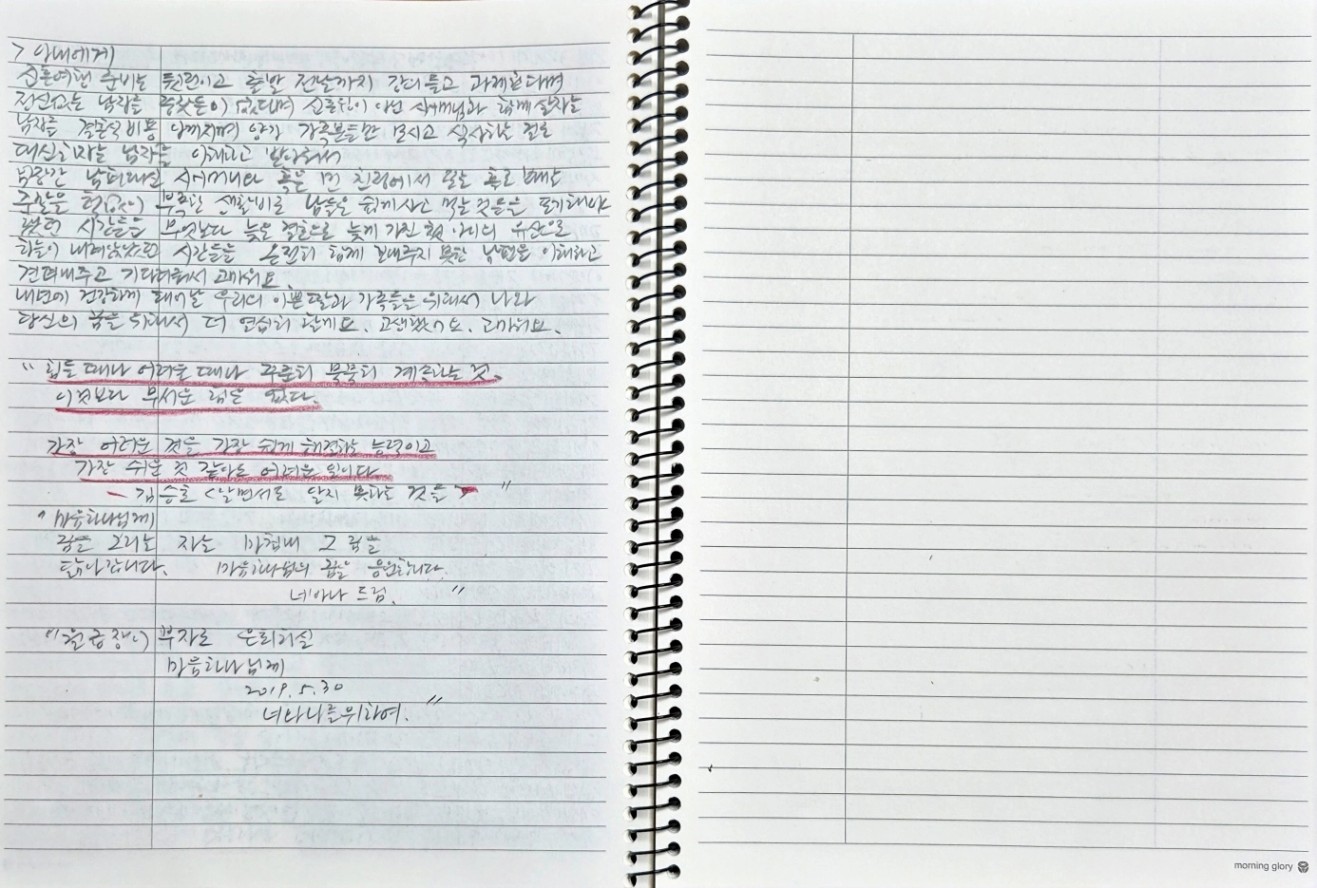 > 아내에게
신혼여행 준비는 뒷전이고 출발 전날까지 강의듣고 과제한다며
정신없는 남자를 신혼집이 아닌 시어머님과 함께 살자는
남자를 결혼식비용 아끼자며 양가 가족분들만 모시고 식사하는 걸로
대신하자는 남자를 이해하고 받아줘서
남편대신 시어머니와 혹은 먼 친정에서 홀로
주말을 부족한 생활비로 남들은 쉽게 사고 먹는 것들을 포기해야
했던 시간들을 무엇보다 늦은 결혼으로 늦게 가진 첫 아이의 유산으로
하늘이 무너졌던 시간들을 온전히 함께 보내주지 못한 남편을 이해하고
견뎌내주고 기다려줘서 고마워요.
내년에 건강하게 태어날 우리의 이쁜딸과 가족들을 위해서 나와
당신의 꿈을 위해서 더 열심히 할게요. 고생했어요. 고마워요.
“ 힘들 때나 어려울 때나 꾸준히 묵묵히 계속하는 것.
이것보다 무서운 힘은 없다.
가장 어려운 것을 가장 쉽게 해결하는 능력이고
가장 쉬운 것 같아도 어려운 일이다.
- 김승호 <알면서도 알지 못하는 것들> ”
“ 마음하나님께
꿈을 그리는 자는 마침내 그 꿈을
닮아갑니다. 마음하나님의 꿈을 응원합니다.
너바나 드림. ”
“ 월급쟁이 부자로 은퇴하실
마음하나님께
2019. 5. 30
너바나를위하여. ”
morning glory